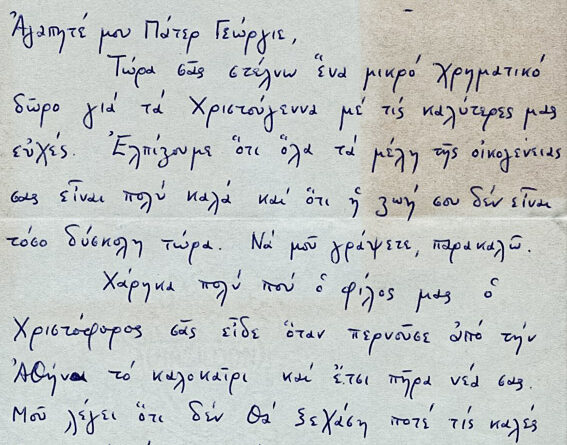 Ἀγαπητέ μου Πάτερ Γεώργιε,
Τώρα σᾶς στέλνω ἕνα μικρό χρηματικό
δῶρο γιά τά Χριστούγεννα μέ τίς καλύτερες μας
εὐχές. Ἐλπίζουμε ὅτι ὅλα τά μέλη τῆς οἰκογένειας
σας εἶναι πολύ καλά καί ὅτι ἡ ζωή σου δέν εἶναι
τόσο δύσκολη τώρα. Νά μοῦ γράψετε, παρακαλῶ.
Χάρηκα πολύ πού ὁ φίλος μας ὁ
Χριστόφορος σᾶς εἶδε ὅταν περνοῦσε ἀπό τήν
Ἀθήνα τό καλοκαῖρι καί ἔτσι πῆρα νέά σας.
Μοῦ λέγει ὅτι δέν θά ξεχάση ποτέ τίς καλές